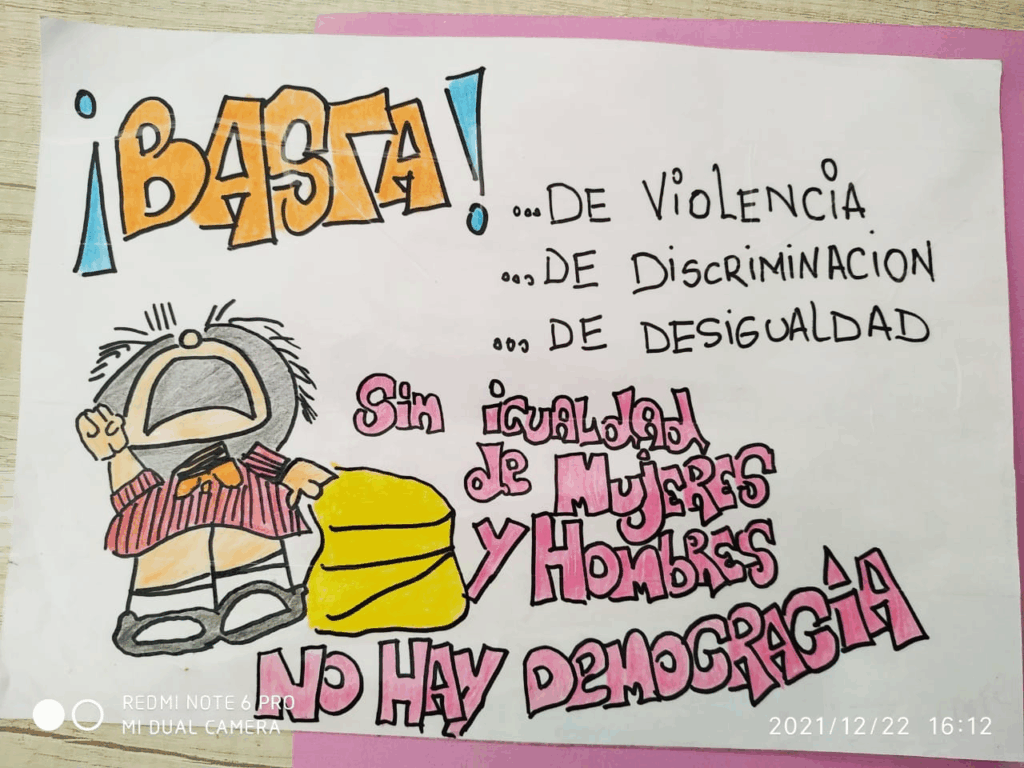 ¡BASTA!
...DE ViOLENCiA
...DE DiSCRiMiNACiON
...DE DESiGUALDAD
Sin iGUALdad
de MUjERES
y HOMbRES
NO HAY DEMOCRACiA
REDMI NOTE 6 PRO
MI DUAL CAMERA
2021/12/22 16:12